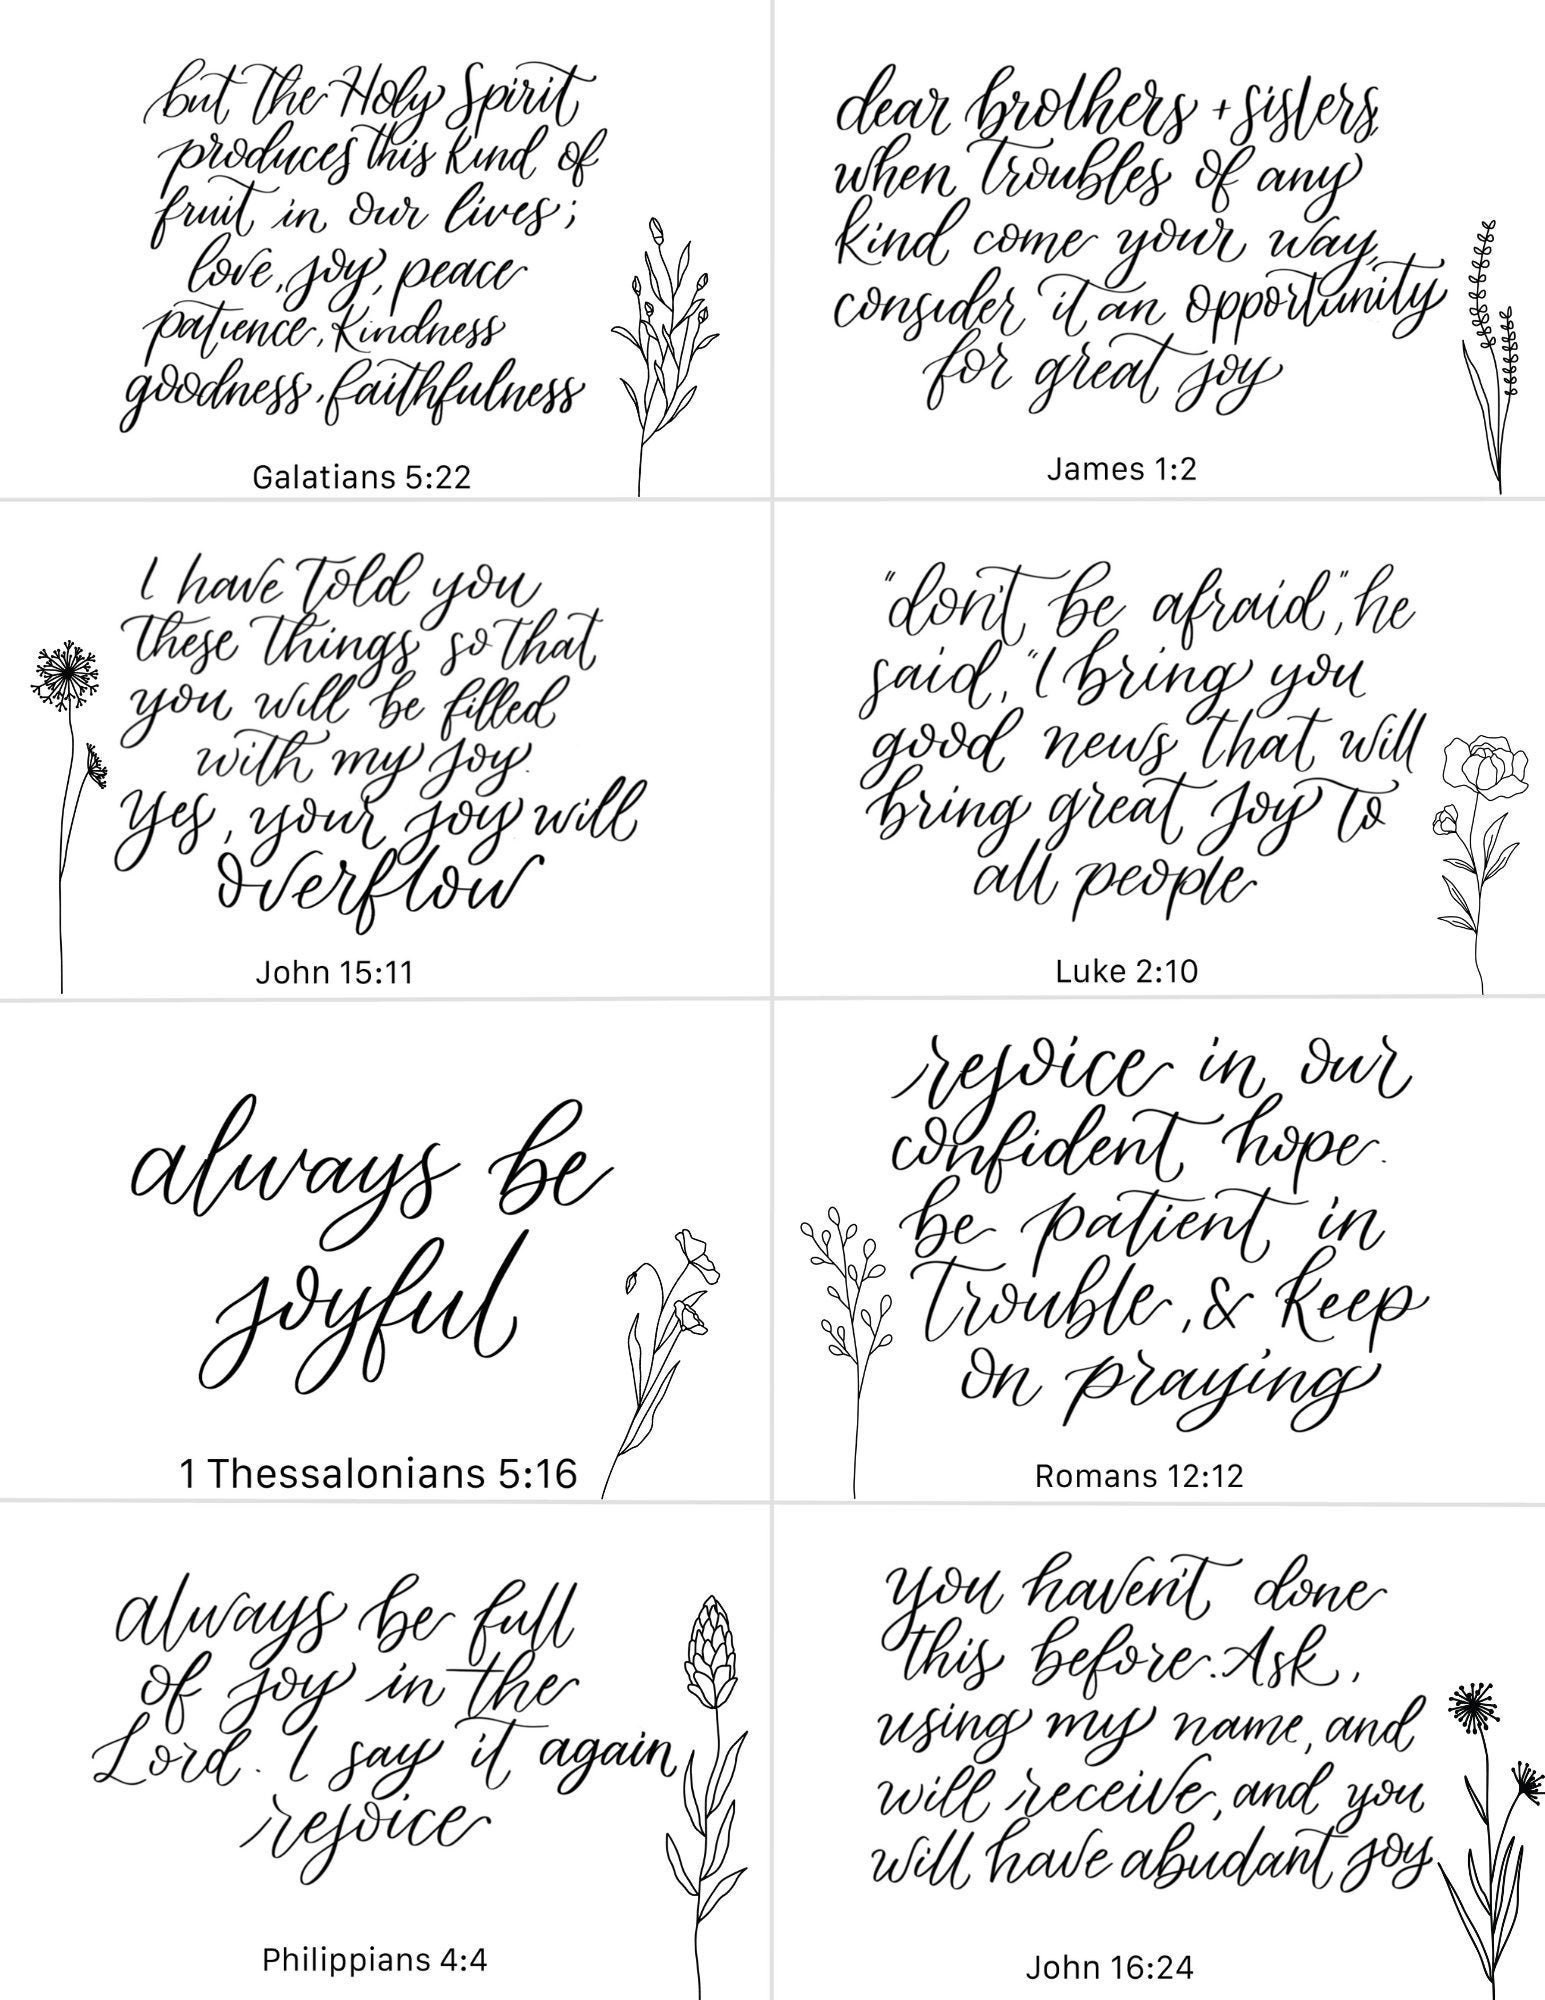 but the Holy Spirit
produces this kind of
fruit in our lives;
love, joy, peace
patience, kindness
goodness, faithfulness
Galatians 5:22
dear brothers + sisters,
when troubles of any
kind come your way,
consider it an opportunity
for great joy
James 1:2
I have told you
these things so that
you will be filled
with my joy.
Yes, your joy will
overflow
John 15:11
"don't be afraid", he
said, "I bring you
good news that will
bring great joy to
all people
Luke 2:10
always be
joyful
1 Thessalonians 5:16
rejoice in our
confident hope.
be patient in
trouble, & keep
on praying
Romans 12:12
always be full
of joy in the
Lord. I say it again,
rejoice
Philippians 4:4
you haven't done
this before. Ask,
using my name, and
will receive, and you
will have abudant joy
John 16:24